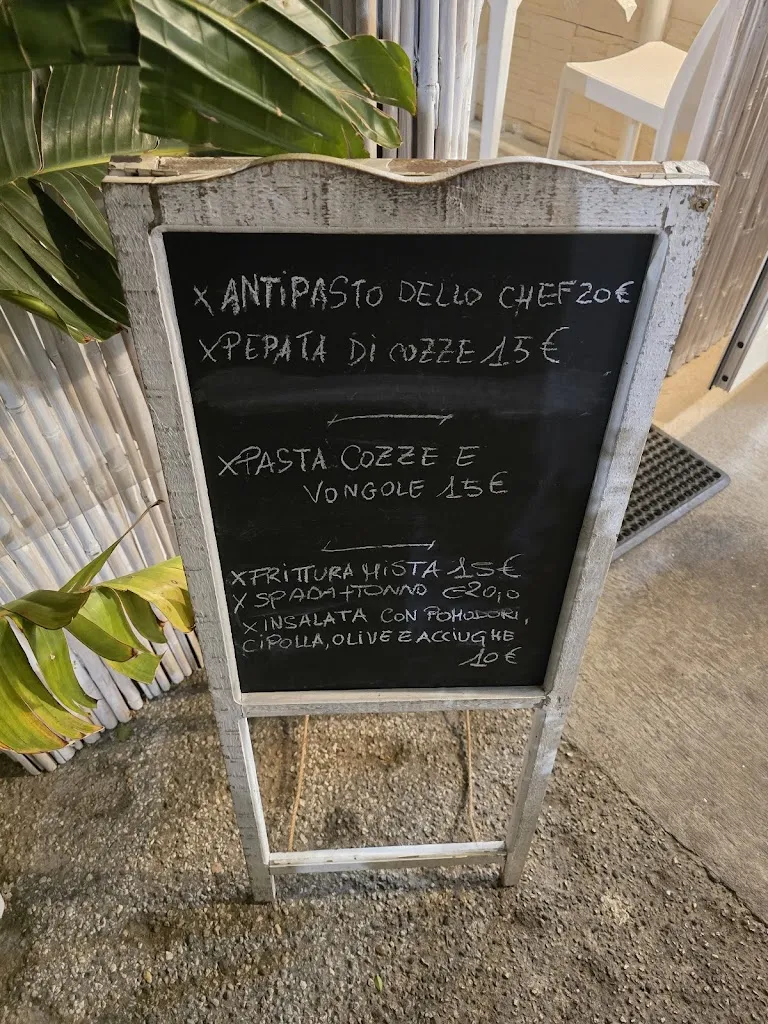 X ANTIPASTO DELLO CHEF 20€
XPEPATA DI COZZE 15€
XPASTA COZZE E
VONGOLE 15€
XFRITTURA MISTA 15€
X SPADA+TONNO €20,0
XINSALATA CON POMODORI,
CIPOLLA, OLIVE E ACCIUGHE
10€